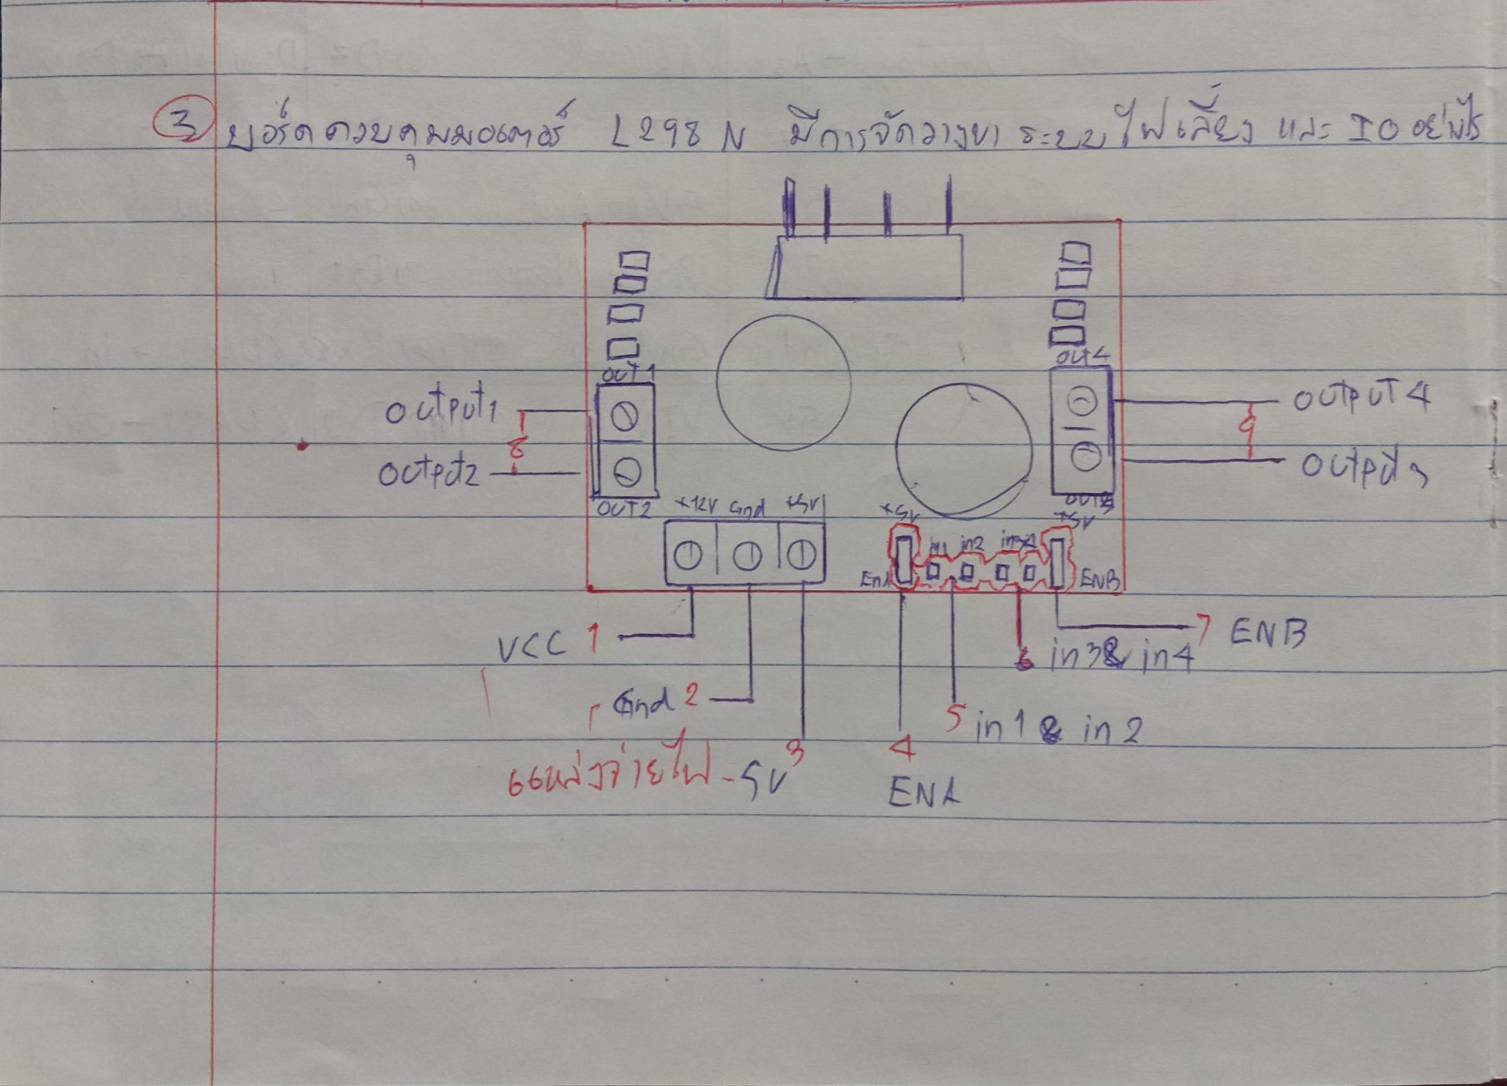 3 บอร์ดควบคุมมอเตอร์ L298N มีการจัดวางขา ระบบไฟเลี้ยง และ IO อย่างไร
OUT1
OUT4
Output1
8
Output2
OUTPUT 4
9
Output3
OUT2
+12V Gnd +5V
+5V
in1 in2 in3 4
OUT3
+5V
EnA
ENB
VCC 1
Gnd 2
แหล่งจ่ายไฟ - 5V 3
4
ENA
5 in 1 & in 2
6 in3 & in4
7 ENB